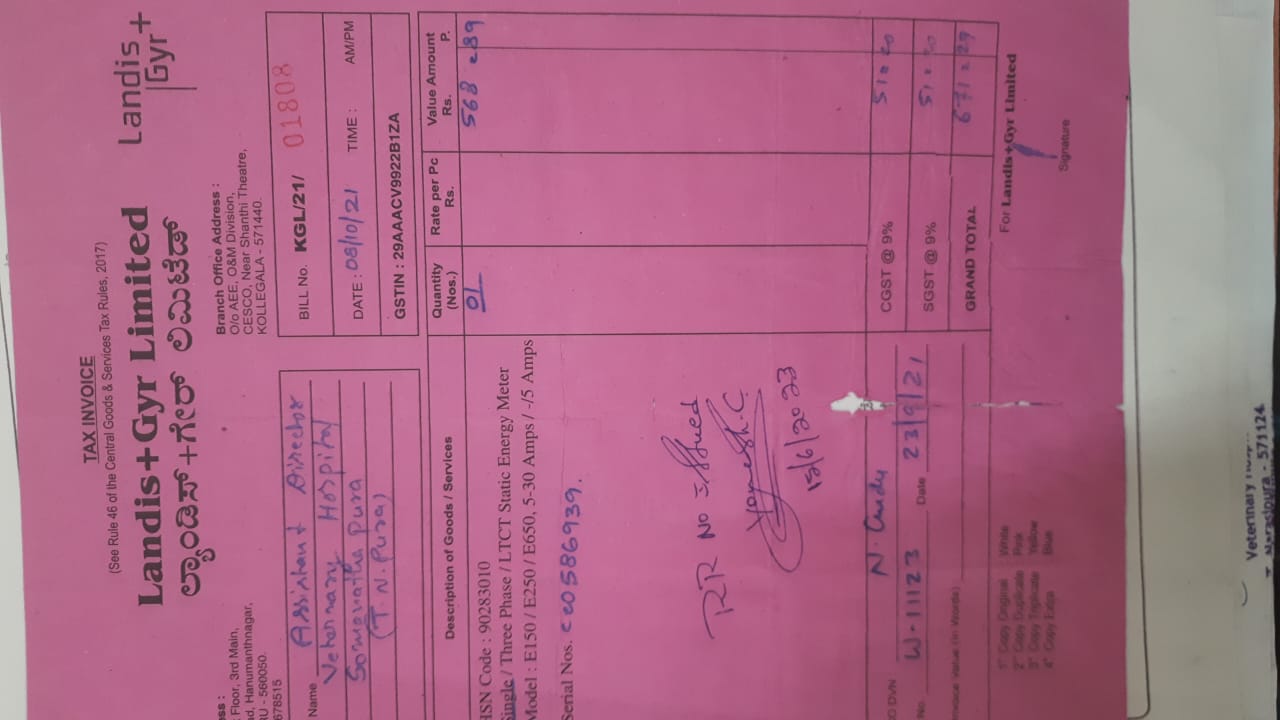 TAX INVOICE
(See Rule 46 of the Central Goods & Services Tax Rules, 2017)
Landis+Gyr Limited
ಲ್ಯಾಂಡಿಸ್+ಗೇರ್ ಲಿಮಿಟೆಡ್
Landis+
Gyr
Floor, 3rd Main,
Hanumanthnagar,
- 560050.
678515
Branch Office Address :
O/o AEE, O&M Division,
CESCO, Near Shanthi Theatre,
KOLLEGALA - 571440.
Name Assistant Director
Veternary Hospital
Somanathapura
(T. N. Pura)
BILL No. KGL/21/ 01808
DATE : 08/10/21 TIME : AM/PM
GSTIN : 29AAACV9922B1ZA
Description of Goods / Services Quantity (Nos.) Rate per Pc Rs. Value Amount Rs. P.
HSN Code : 90283010 01 568 =89
Single / Three Phase / LTCT Static Energy Meter
Model : E150 / E250 / E650, 5-30 Amps / -/5 Amps
Serial Nos.
RR No Issued
15/6/2023
DVN CGST @ 9% 51=20
No. W-11123 Date 23/9/21 SGST @ 9% 51=20
Invoice Value (in Words) GRAND TOTAL 671=29
1st Copy Original White
2nd Copy Duplicate Pink
3rd Copy Triplicate Yellow
4th Copy Extra Blue
For Landis+Gyr Limited
Signature
Veterinary
- 571124